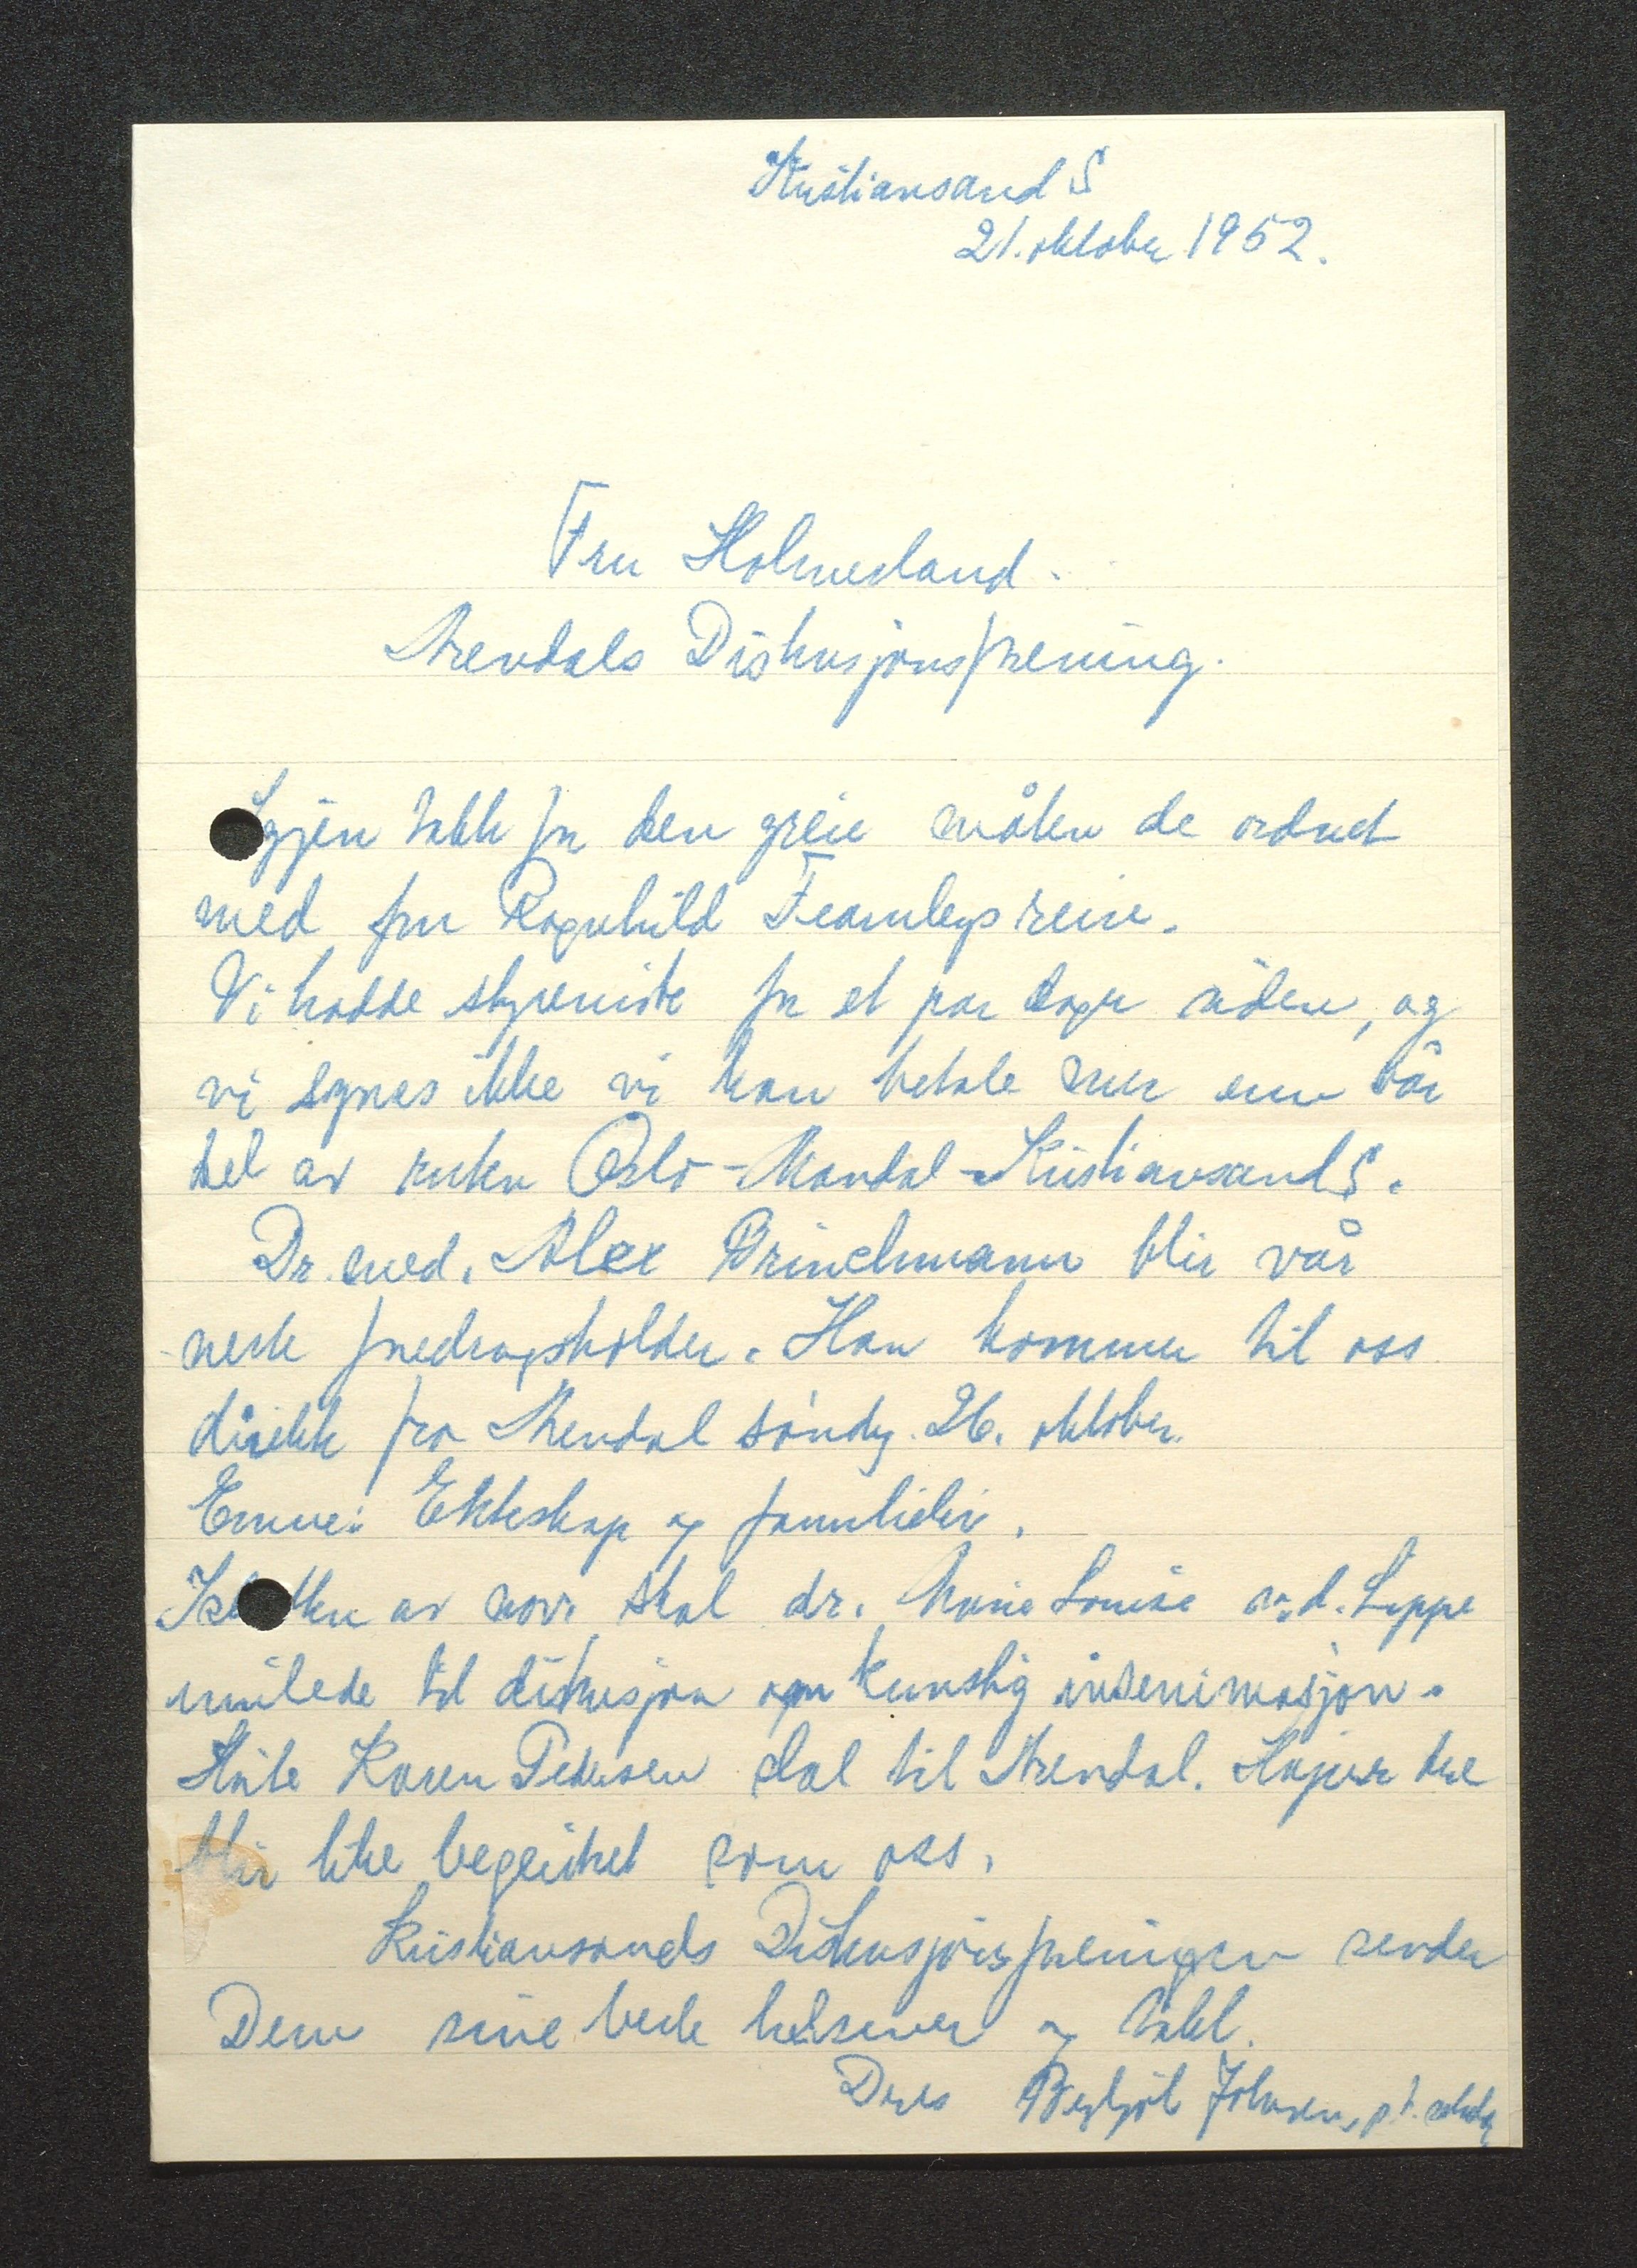 Kristiansand S
21. oktober 1952.
Fru Holmesland.
Arendals Diskusjonsforening.
Igjen takk for den greie måten de ordnet
med fru Ragnhild Fearnleys reise.
Vi hadde styremöte for et par dager siden, og
vi synes ikke vi kan betale mer enn vår
del av ruten Oslo-Mandal-Kristiansand S.
Dr. med. Alex Brinchmann blir vår
neste foredragsholder. Han kommer til oss
direkte fra Arendal söndag 26. oktober.
Emne: Ekteskap og familieliv.
I slutten av nov. skal dr. Marie Louise v.d. Lippe
innlede til diskusjon om kunstig inseminasjon.
Käte Karen Pedersen skal til Arendal. Håper dere
blir like begeistret som oss.
Kristiansands Diskusjonsforeningen sender
Dem sine beste hilsener og takk.
Deres Bergljot Johnsen, p.t.